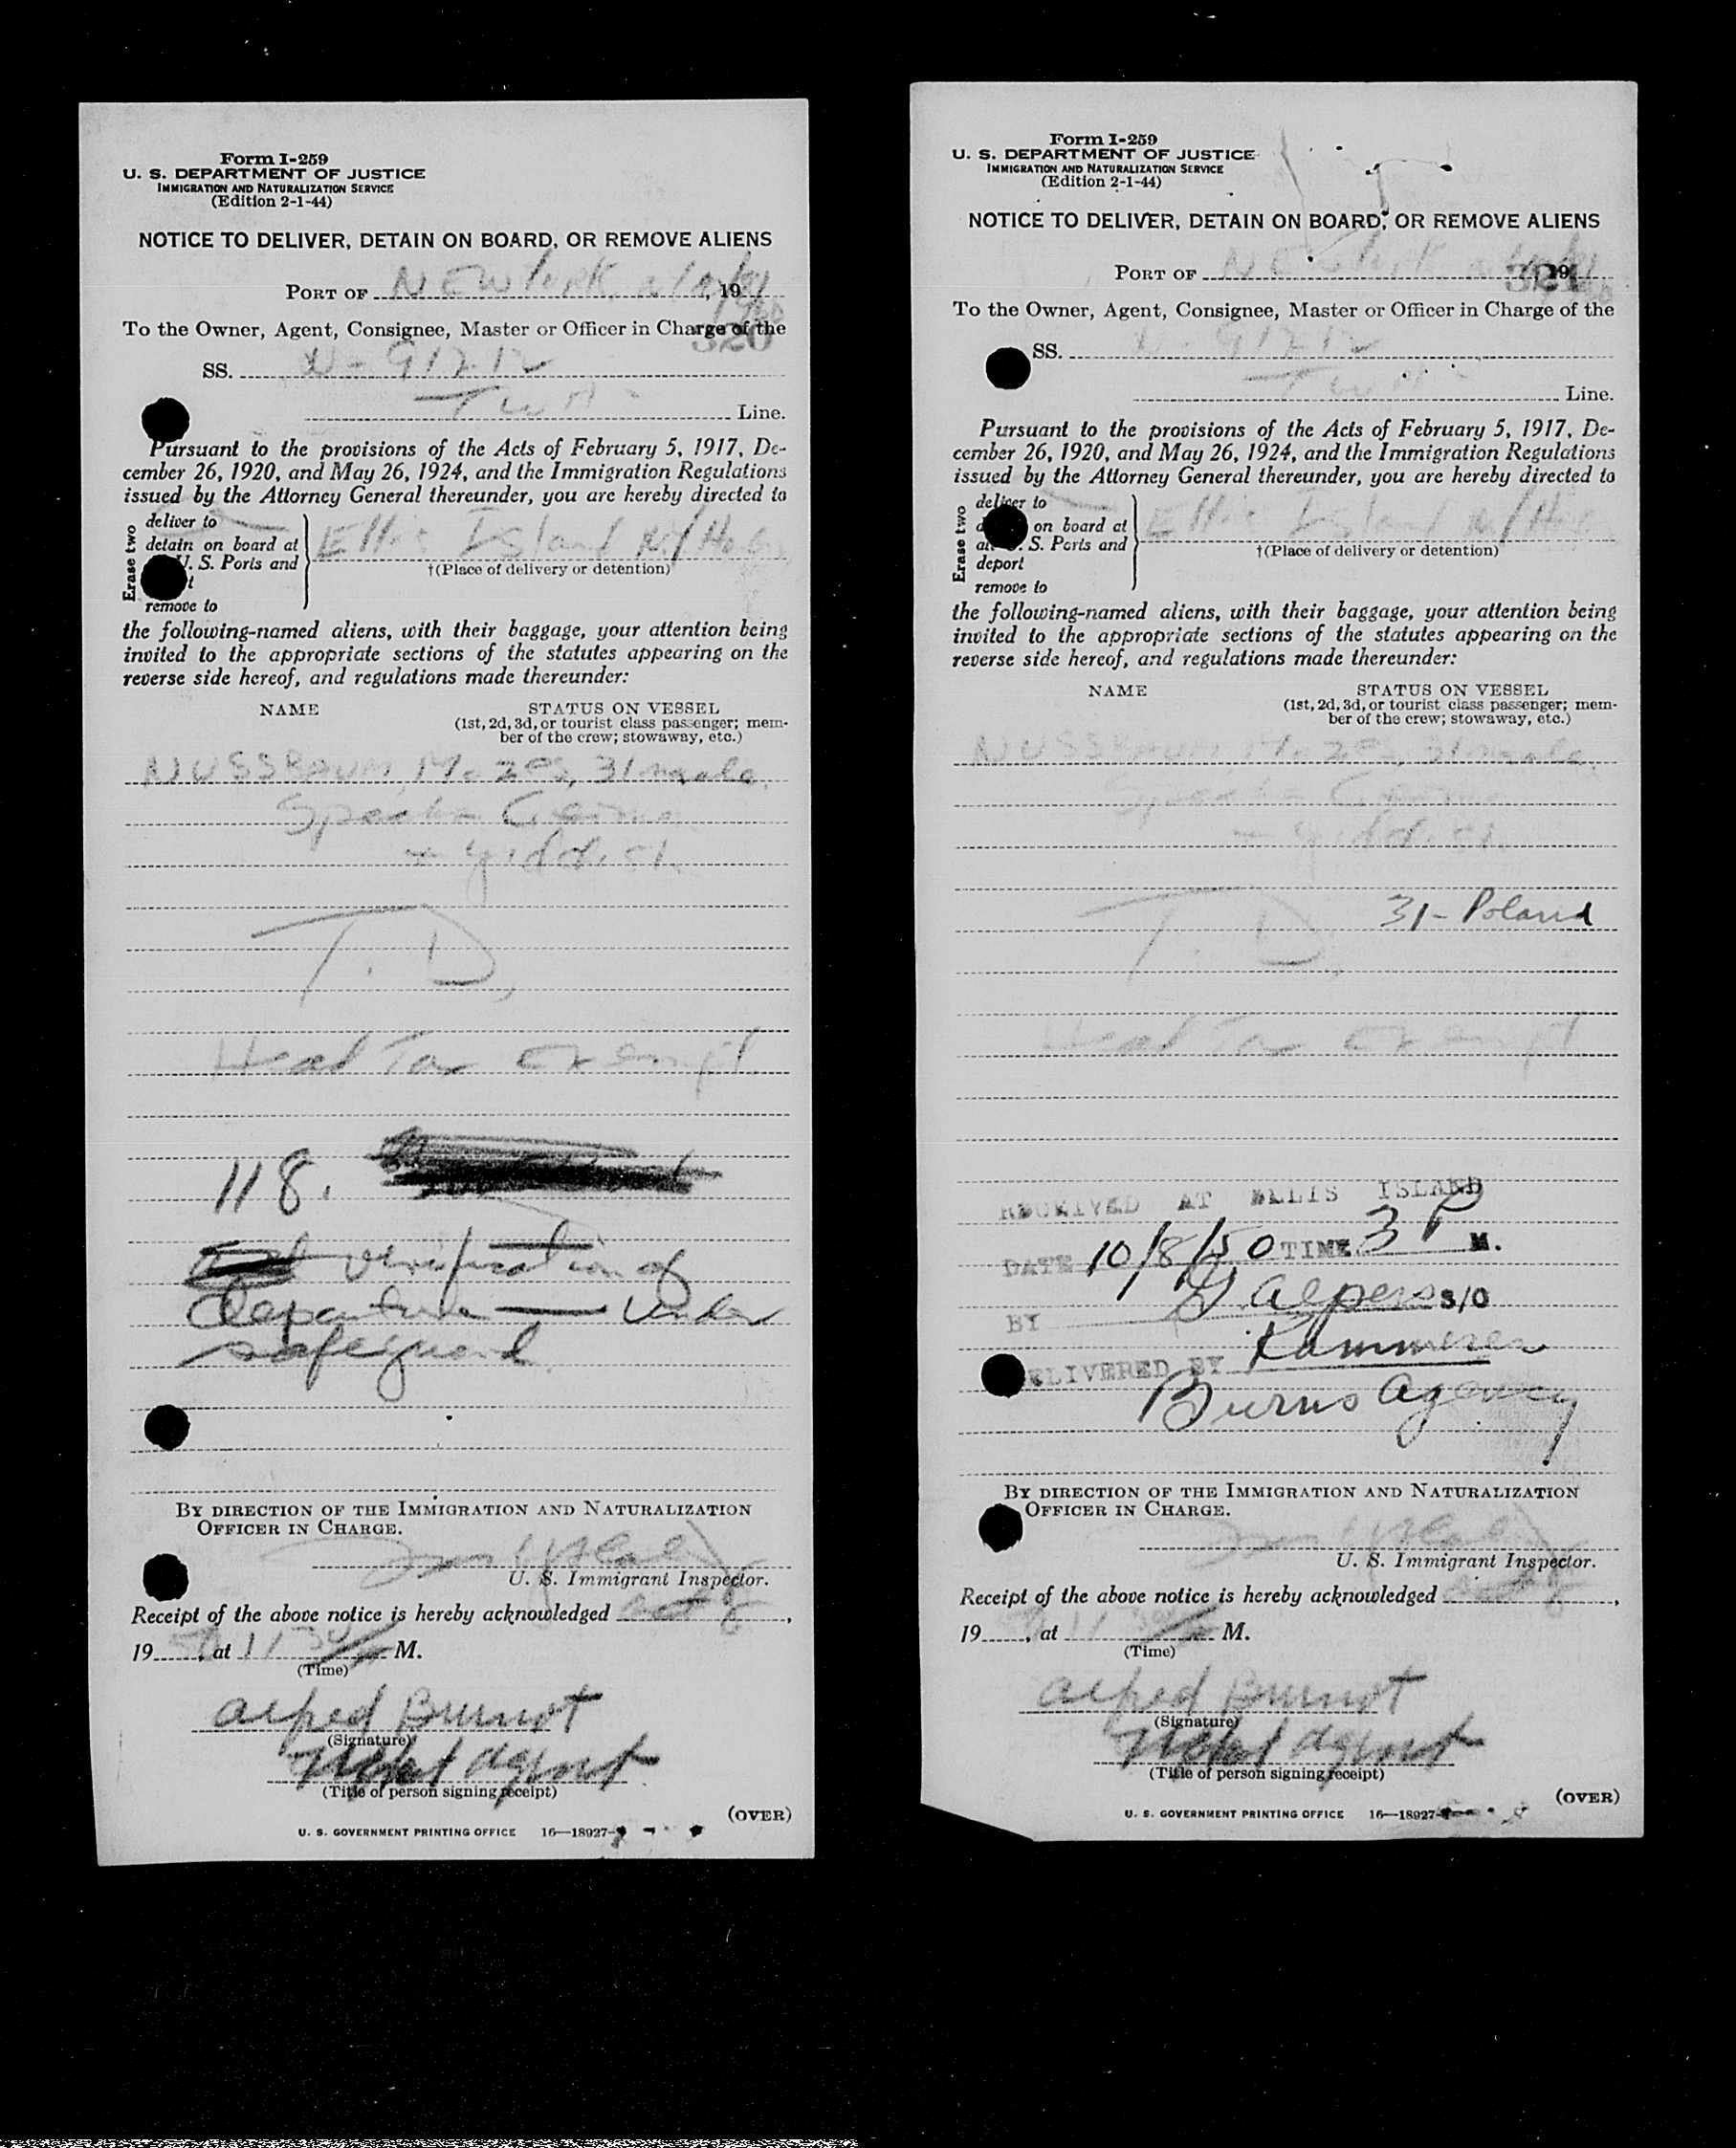 Form I-259
U. S. DEPARTMENT OF JUSTICE
IMMIGRATION AND NATURALIZATION SERVICE
(Edition 2-1-44)
NOTICE TO DELIVER, DETAIN ON BOARD, OR REMOVE ALIENS
PORT OF NEW York, , 19
To the Owner, Agent, Consignee, Master or Officer in Charge of the
320
SS. N-91212
TWA Line.
Pursuant to the provisions of the Acts of February 5, 1917, De-
cember 26, 1920, and May 26, 1924, and the Immigration Regulations
issued by the Attorney General thereunder, you are hereby directed to
Erase two
deliver to
detain on board at
U. S. Ports and
remove to
Ellis Island N.Y. Harbor
†(Place of delivery or detention)
the following-named aliens, with their baggage, your attention being
invited to the appropriate sections of the statutes appearing on the
reverse side hereof, and regulations made thereunder:
NAME STATUS ON VESSEL
(1st, 2d, 3d, or tourist class passenger; mem-
ber of the crew; stowaway, etc.)
NUSSBAUM, Mozes, 31 male,
Speaks German
+ Yiddish
T. D,
Head Tax Exempt
118.
verification of
Departure — under
safeguard.
BY DIRECTION OF THE IMMIGRATION AND NATURALIZATION
OFFICER IN CHARGE.
U. S. Immigrant Inspector.
Receipt of the above notice is hereby acknowledged ,
19 50, at 11 30 M.
(Time)
Alfred Burnot
(Signature)
Ticket Agent
(Title of person signing receipt)
(OVER)
U. S. GOVERNMENT PRINTING OFFICE 16—18927-
Form I-259
U. S. DEPARTMENT OF JUSTICE
IMMIGRATION AND NATURALIZATION SERVICE
(Edition 2-1-44)
NOTICE TO DELIVER, DETAIN ON BOARD, OR REMOVE ALIENS
PORT OF NEW York , 19
321
To the Owner, Agent, Consignee, Master or Officer in Charge of the
SS. N-91212
TWA Line.
Pursuant to the provisions of the Acts of February 5, 1917, De-
cember 26, 1920, and May 26, 1924, and the Immigration Regulations
issued by the Attorney General thereunder, you are hereby directed to
Erase two
deliver to
on board at
S. Ports and
deport
remove to
Ellis Island N.Y. Harbor
†(Place of delivery or detention)
the following-named aliens, with their baggage, your attention being
invited to the appropriate sections of the statutes appearing on the
reverse side hereof, and regulations made thereunder:
NAME STATUS ON VESSEL
(1st, 2d, 3d, or tourist class passenger; mem-
ber of the crew; stowaway, etc.)
NUSSBAUM, Mozes, 31 male,
Speaks German
+ Yiddish
31- Poland
T. D,
Head Tax Exempt
RECEIVED AT ELLIS ISLAND
DATE 10/8/50 TIME 3 P M.
BY S/O
DELIVERED BY Kammerer
Burns Agency
BY DIRECTION OF THE IMMIGRATION AND NATURALIZATION
OFFICER IN CHARGE.
U. S. Immigrant Inspector.
Receipt of the above notice is hereby acknowledged ,
19 , at 11 30 M.
(Time)
Alfred Burnot
(Signature)
Ticket Agent
(Title of person signing receipt)
(OVER)
U. S. GOVERNMENT PRINTING OFFICE 16—18927-